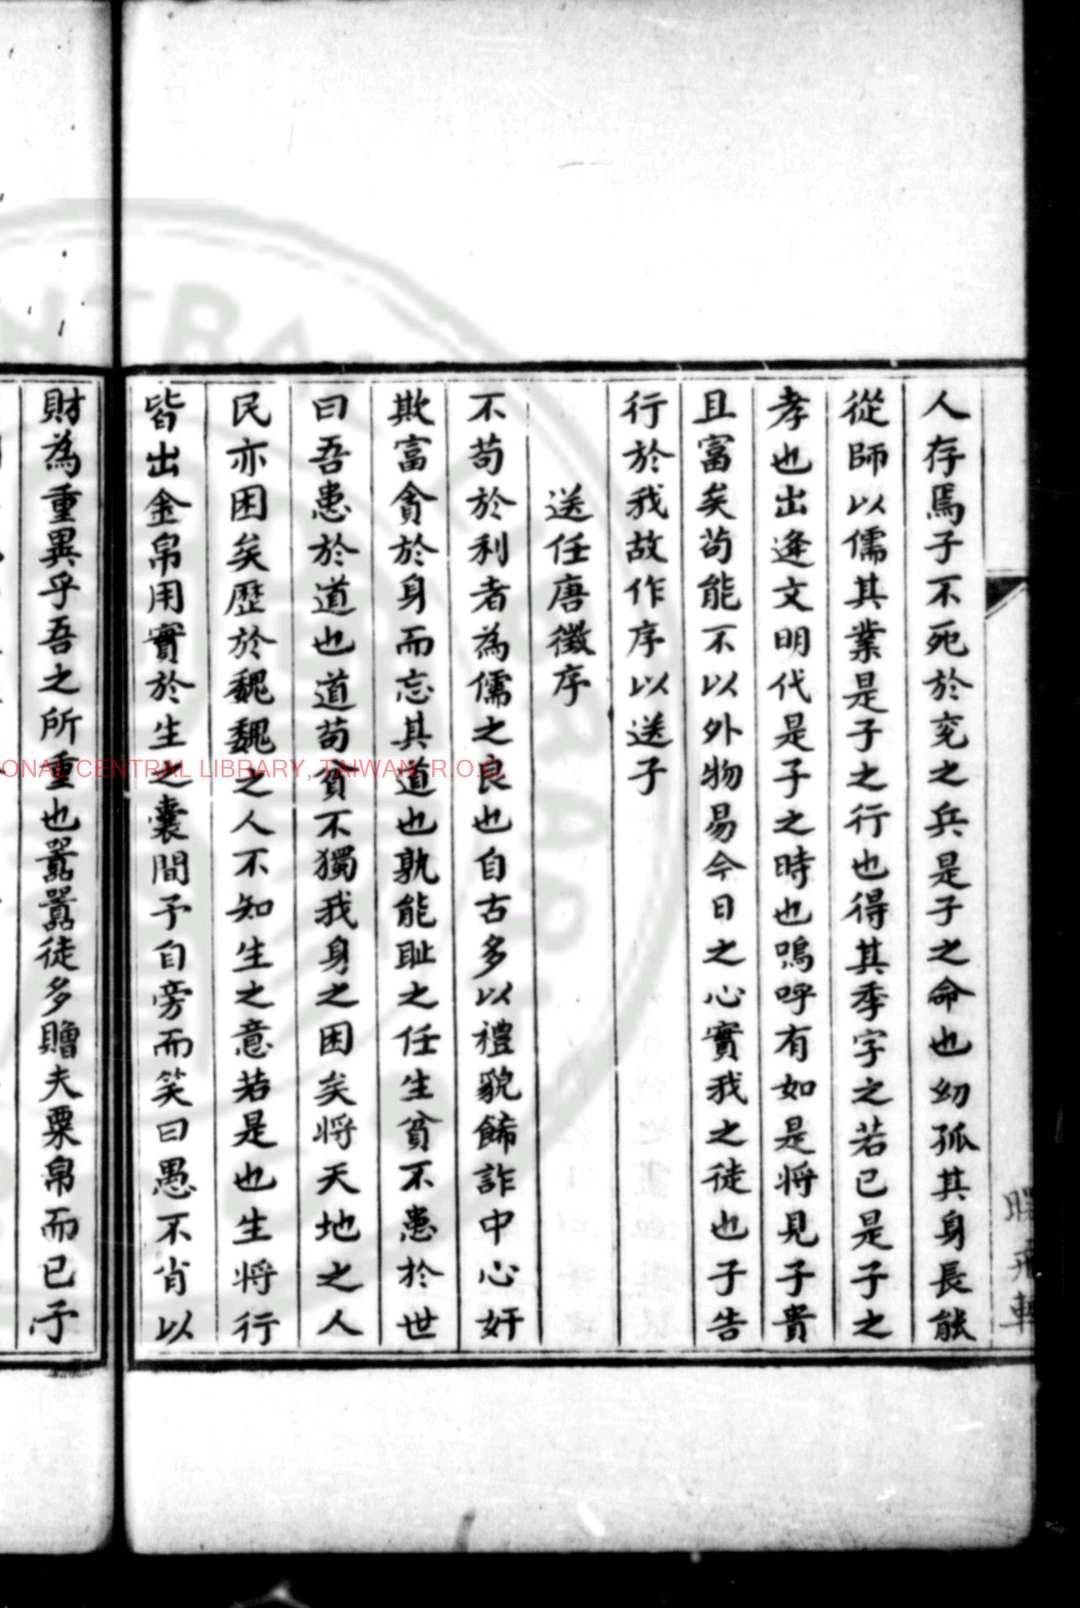 人存焉子不死於兖之兵是子之命也幼孤其身長能
從師以儒其業是子之行也得其季字之若已是子之
孝也出逢文明代是子之時也嗚呼有如是將見子貴
且富矣苟能不以外物易今日之心實我之徒也子告
行於我故作序以送子
送任唐徵序
不苟於利者為儒之良也自古多以禮貌餙詐中心奸
欺富貪於身而忘其道也孰能耻之任生貧不患於世
曰吾患於道也道苟貧不獨我身之困矣將天地之人
民亦困矣歷於魏魏之人不知生之意若是也生將行
皆出金帛用實於生之囊間予自旁而笑曰愚不肖以
財為重異乎吾之所重也囂囂徒多贈夫粟帛而已予
NATIONAL CENTRAL LIBRARY, TAIWAN, R.O.C.